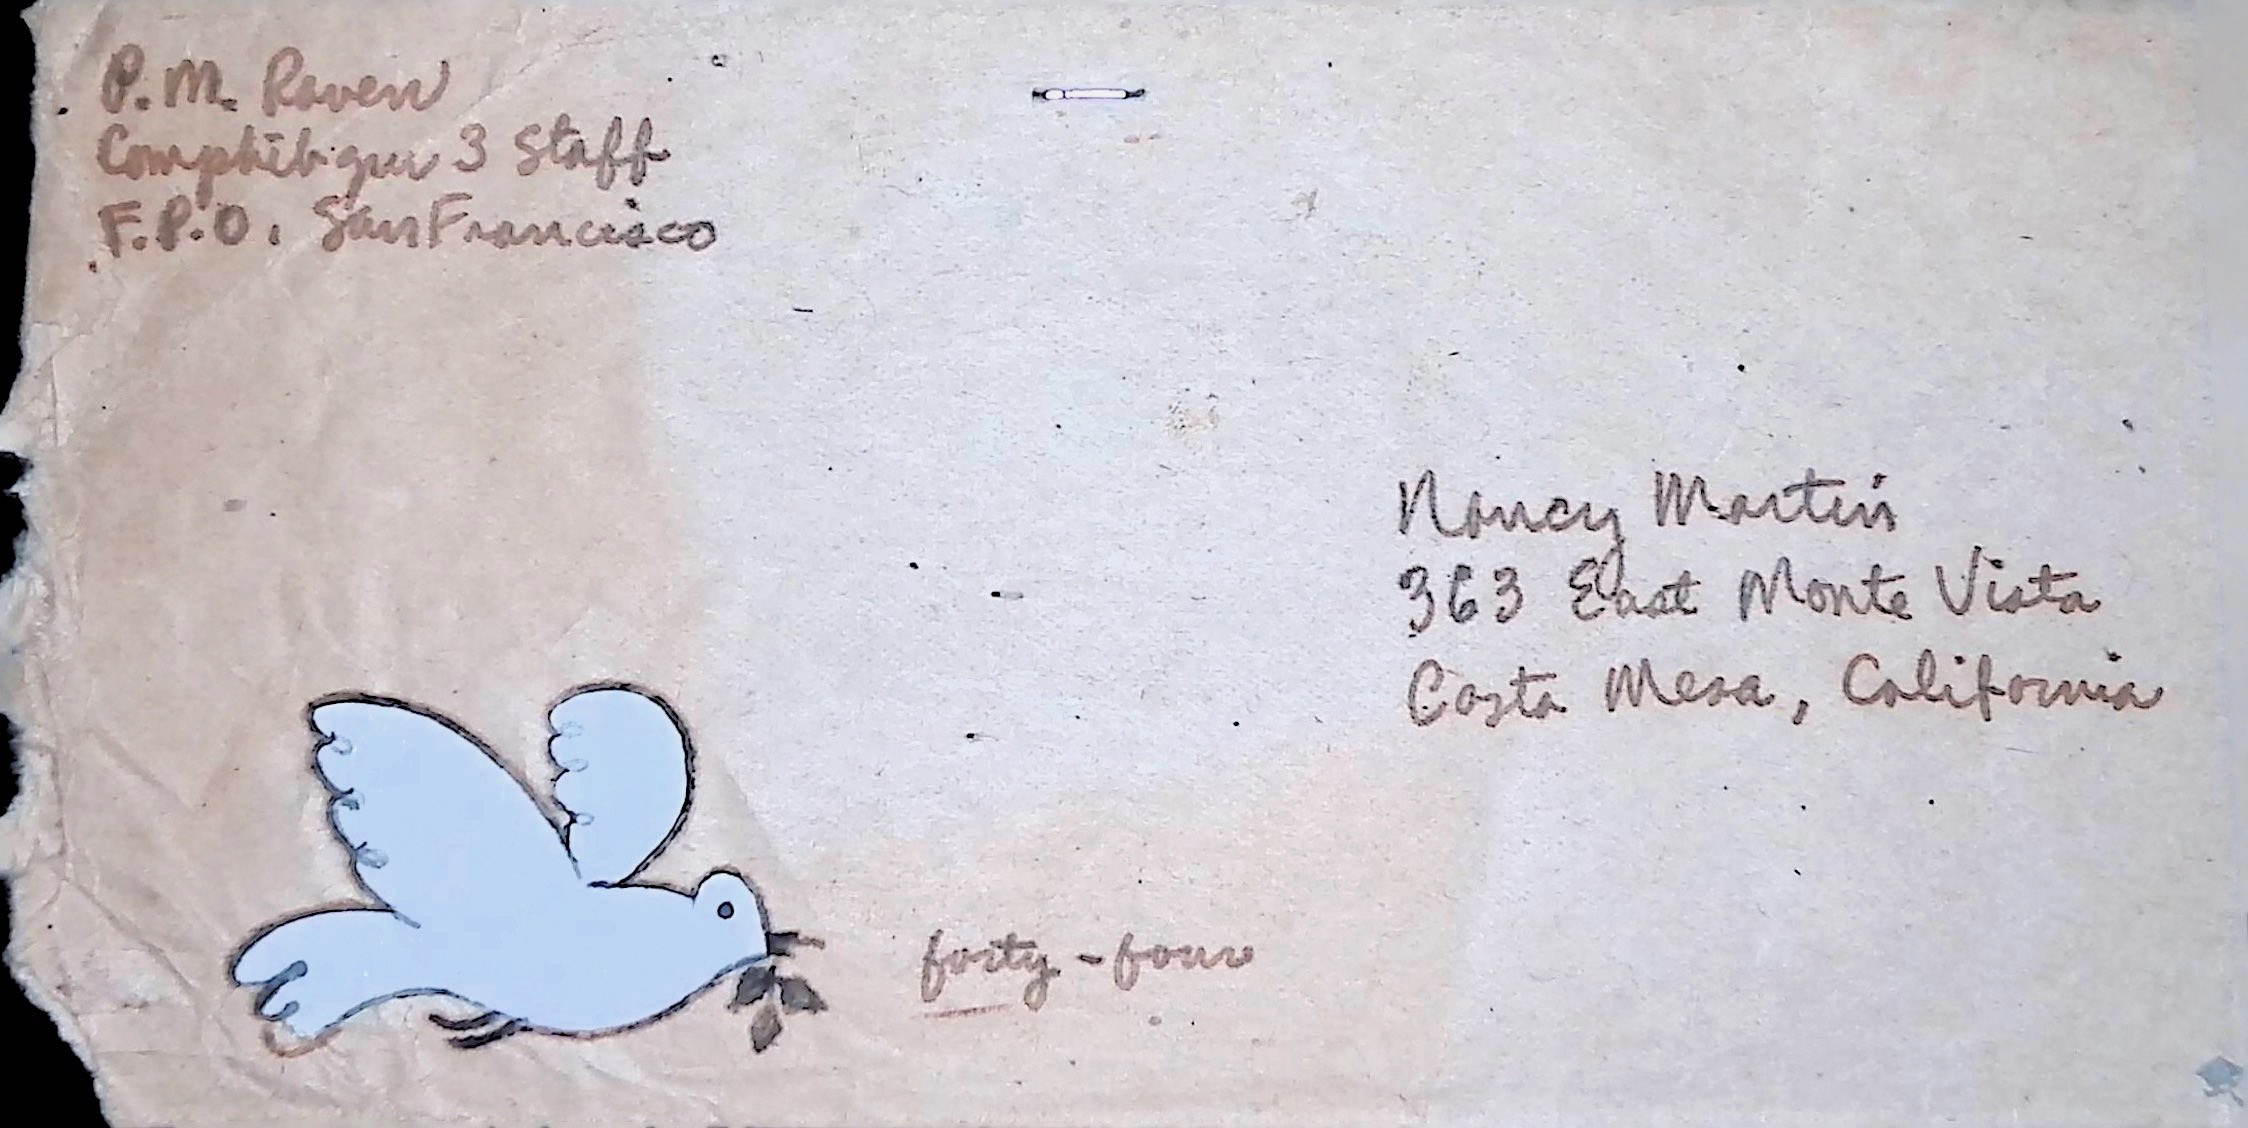 P. M. Raven
Comphibgru 3 Staff
F.P.O. San Francisco
Nancy Martin
363 East Monte Vista
Costa Mesa, California
forty-four